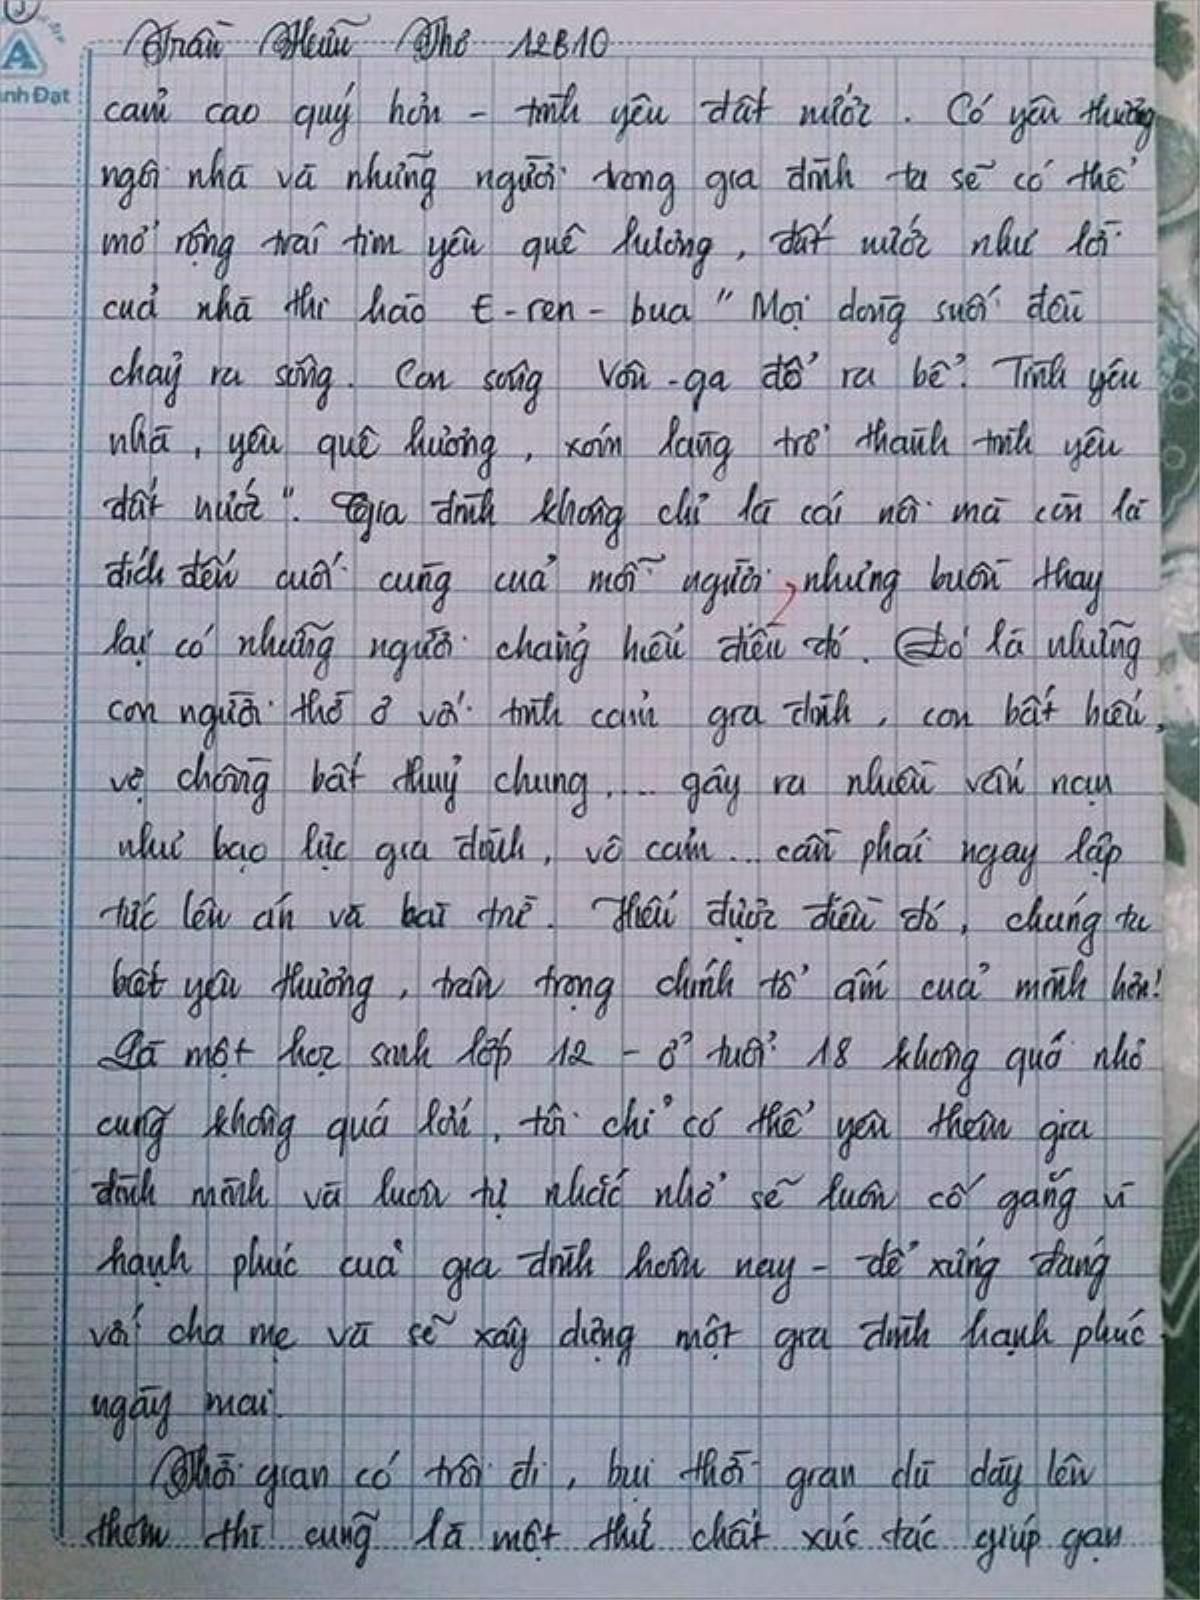 Trần Hữu Thơ 12B10
A
nh Đạt
cảm cao quý hơn - tình yêu đất nước. Có yêu thương
ngôi nhà và những người trong gia đình ta sẽ có thể
mở rộng trái tim yêu quê hương, đất nước như lời
của nhà thi hào E-ren-bua "Mọi dòng suối đều
chảy ra sông. Con sông Vôn-ga đổ ra bể. Tình yêu
nhà, yêu quê hương, xóm làng trở thành tình yêu
đất nước". Gia đình không chỉ là cái nôi mà còn là
đích đến cuối cùng của mỗi người, nhưng buồn thay
lại có những người chẳng hiểu điều đó. Đó là những
con người thờ ơ với tình cảm gia đình, con bất hiếu,
vợ chồng bất thuỷ chung,... gây ra nhiều vấn nạn
như bạo lực gia đình, vô cảm... cần phải ngay lập
tức lên án và bài trừ. Hiểu được điều đó, chúng ta
biết yêu thương, trân trọng chính tổ ấm của mình hơn!
Là một học sinh lớp 12 - ở tuổi 18 không quá nhỏ
cũng không quá lớn, tôi chỉ có thể yêu thêm gia
đình mình và luôn tự nhắc nhở sẽ luôn cố gắng vì
hạnh phúc của gia đình hôm nay - để xứng đáng
với cha mẹ và sẽ xây dựng một gia đình hạnh phúc
ngày mai.
Thời gian có trôi đi, bụi thời gian dù dày lên
thêm thì cũng là một thứ chất xúc tác giúp gạn